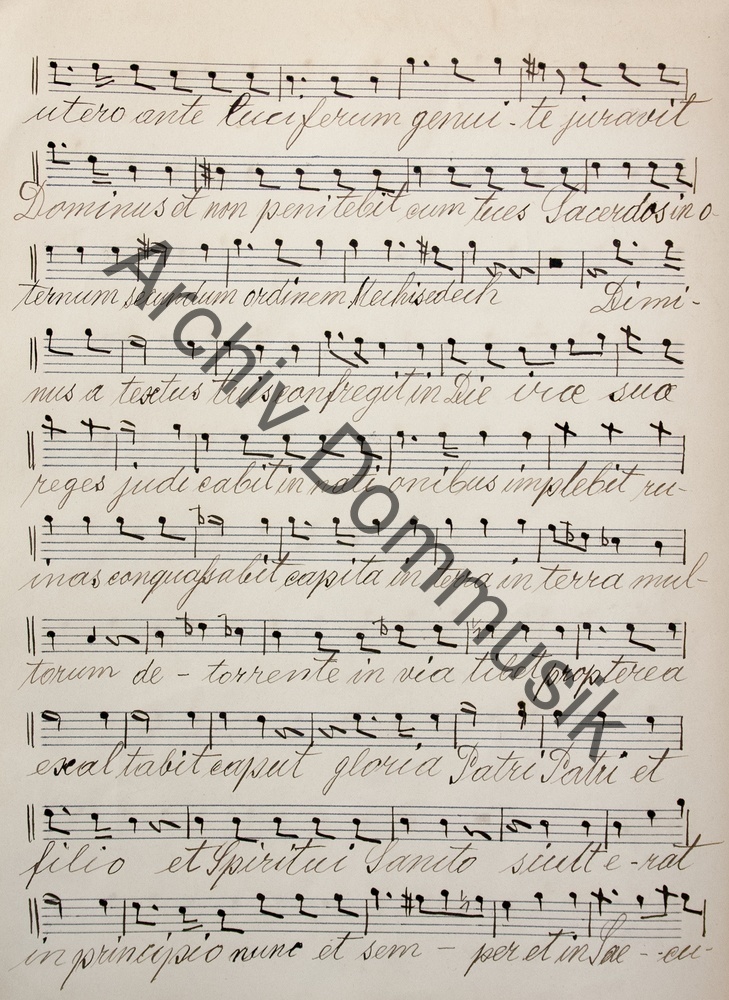 utero ante luciferum genui-te juravit
Dominus et non penitebit eum tues Sacerdos in o-
ternum secundum ordinem Mechisedech Dimi-
nus a textus tuis confregit in Die iræ suæ
reges judi cabit in nati onibus implebit ru-
inas conquassabit capita in terra in terra mul-
torum de - torrente in via tibet propterea
exal tabit caput gloria Patri Patri et
filio et Spiritui Sancto siutt e-rat
in principio nunc et sem - per et in Sae - - cu-
Archiv Dommusik